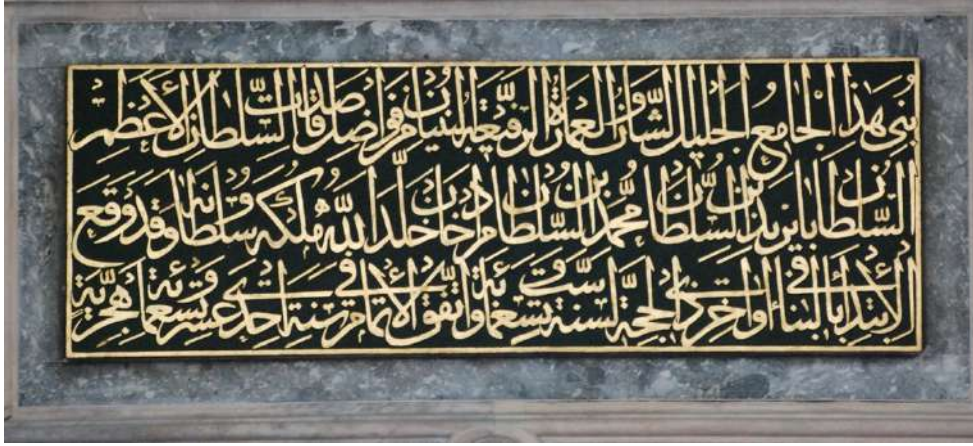 بُنِيَ هَذَا الْجَامِعُ الْجَلِيلُ الشَّانِ وَالْعِمَارَةُ الرَّفِيعَةُ الْبُنْيَانِ مِنْ فَوَاضِلِ صَدَقَاتِ السُّلْطَانِ الْأَعْظَمِ
السُّلْطَانِ بَايَزِيدَ بْنِ السُّلْطَانِ مُحَمَّد بْنِ السُّلْطَانِ مُرَادْ خَانْ خَلَّدَ اللّٰهُ مُلْكَهُ وَسُلْطَانَهُ وَقَدْ وَقَعَ
الْاِبْتِدَاءُ بِالْبِنَاءِ فِي أَوَاخِرِ ذِي الْحِجَّةِ لِسَنَةِ سِتٍّ وَتِسْعِمِائَةٍ وَاتَّفَقَ الْإِتْمَامُ فِي سَنَةِ إِحْدَى عَشَرَ وَتِسْعِمِائَةٍ هِجْرِيَّة